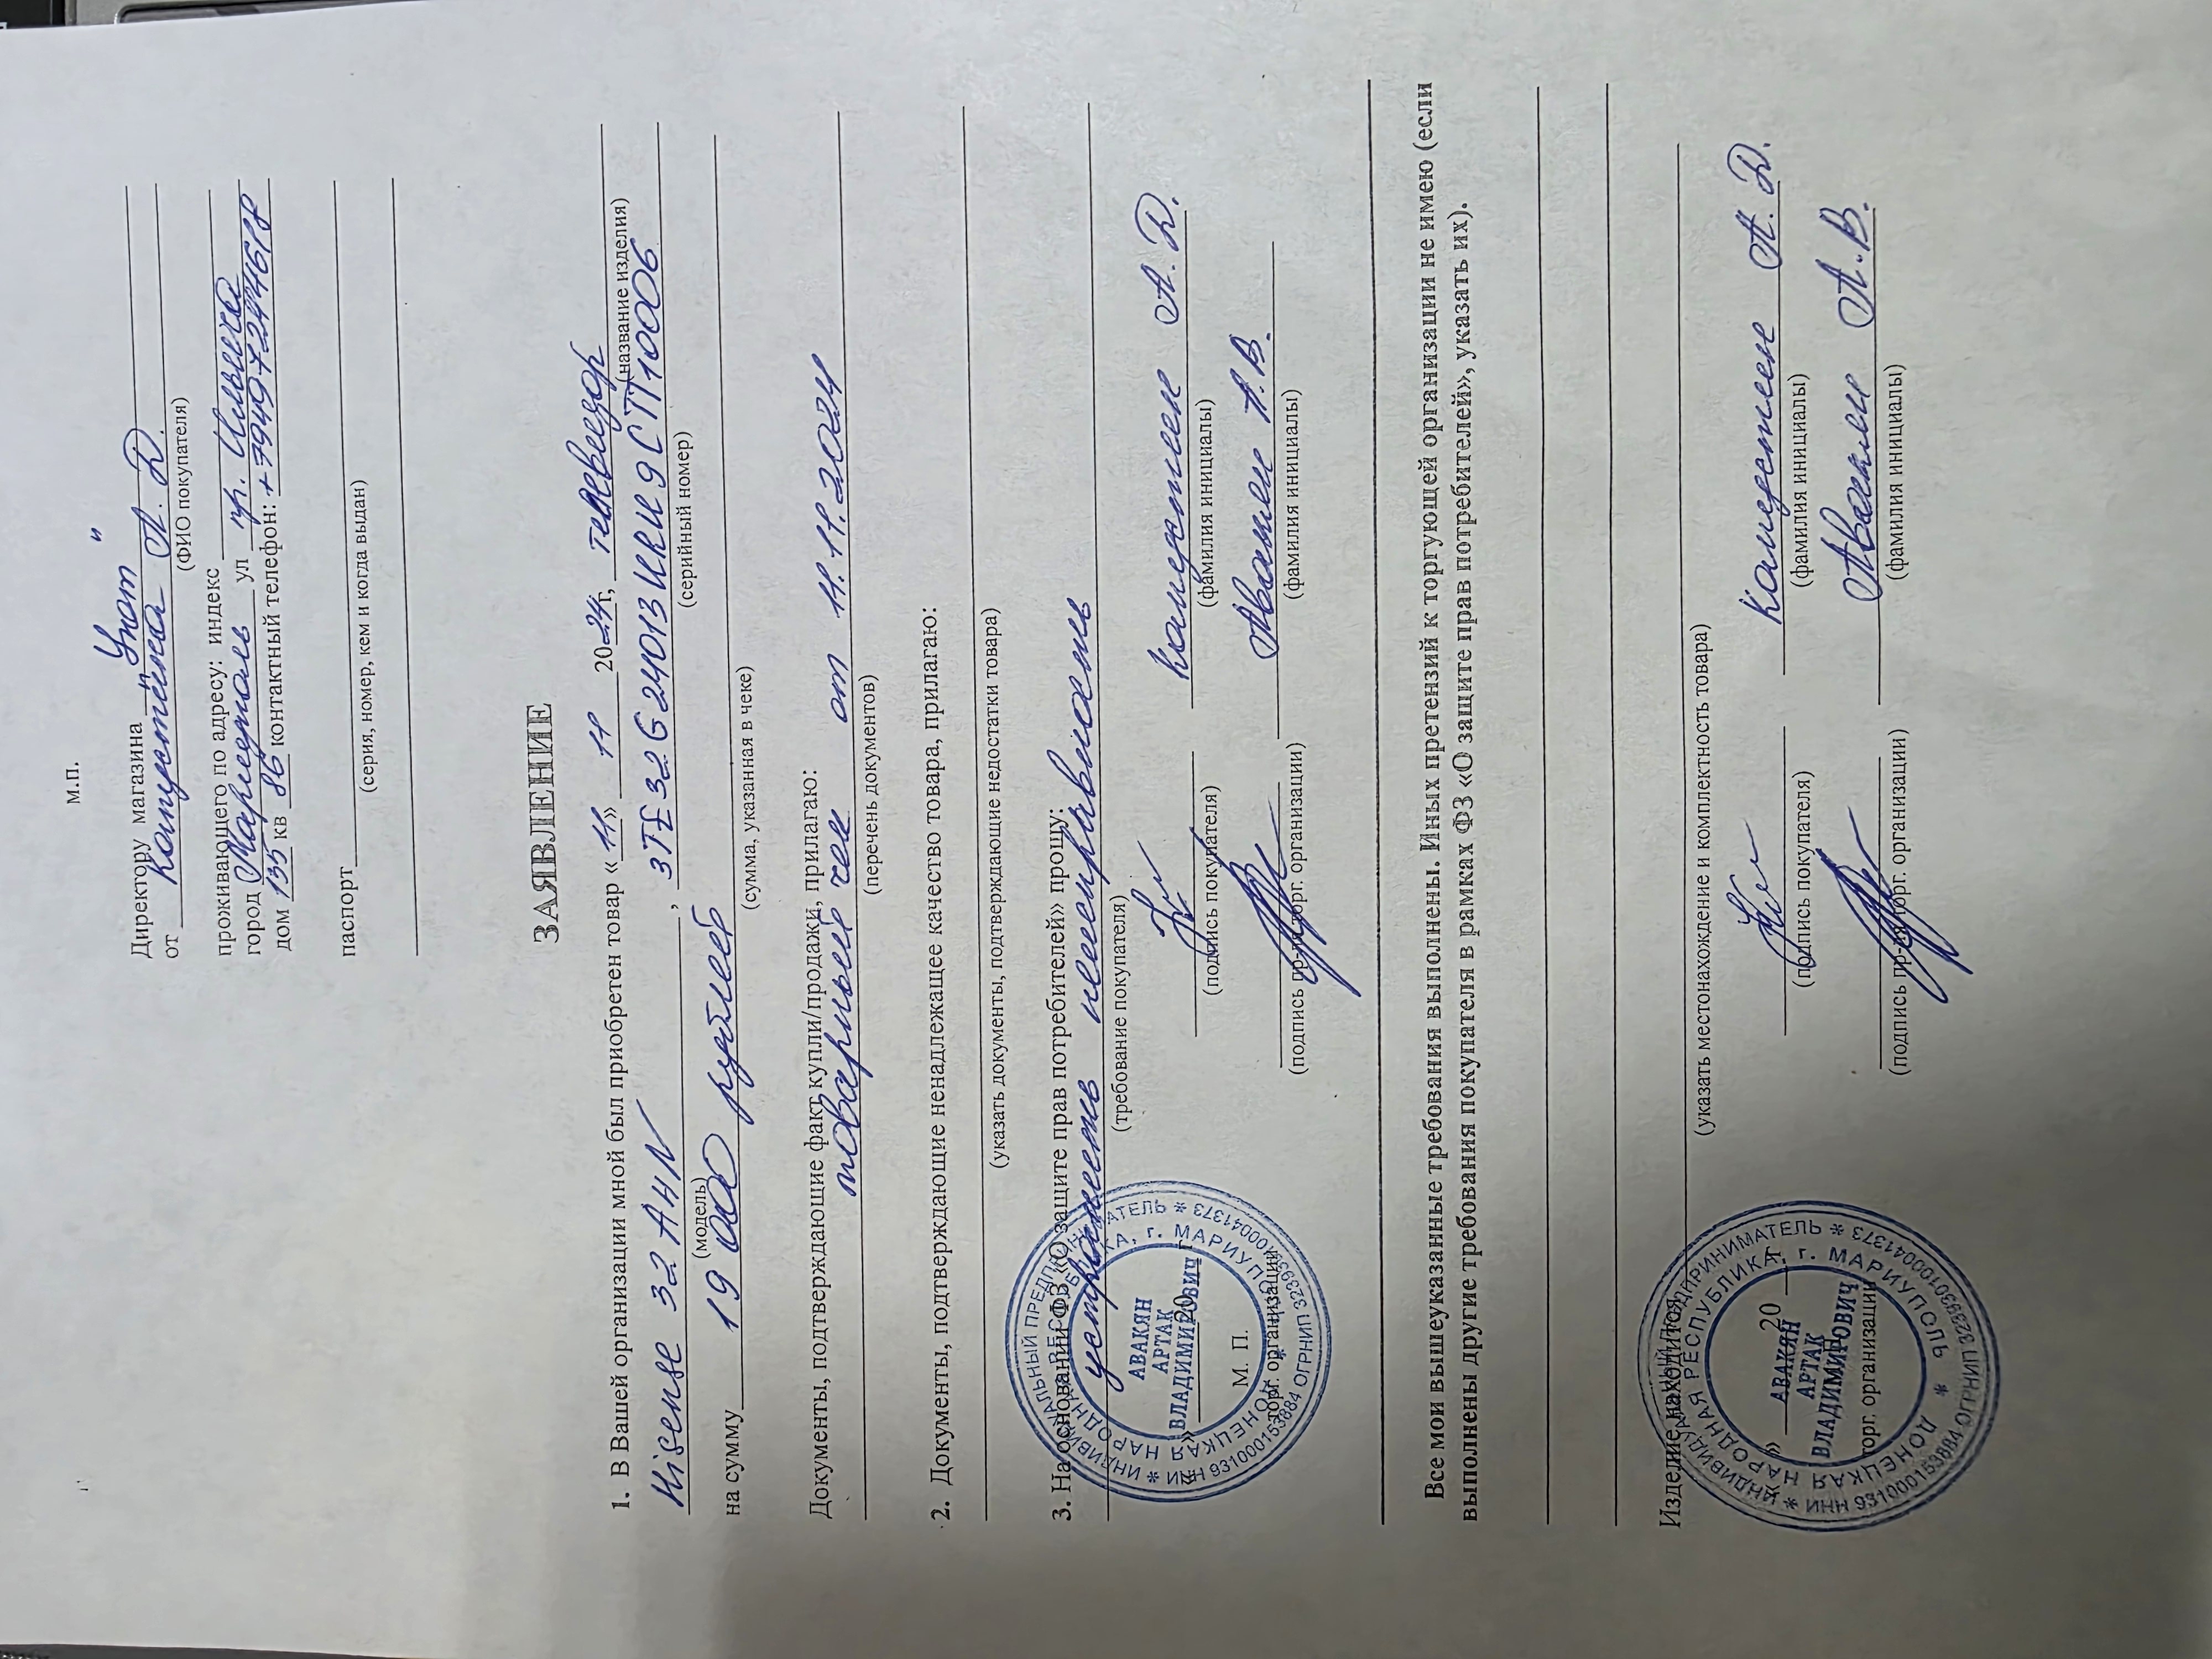 м.п.
Директору магазина " Уют "
от Капустена А. Д.
(ФИО покупателя)
проживающего по адресу: индекс
город Мариуполь ул пр. Ильича
дом 135 кв 86 контактный телефон: +79497244618
паспорт
(серия, номер, кем и когда выдан)
ЗАЯВЛЕНИЕ
1. В Вашей организации мной был приобретен товар « 11 » 11 2024г, телевизор
(название изделия)
Hisense 32 AHN , 3TE32G24013 9CП10006
(модель) (серийный номер)
на сумму 19 000 рублей
(сумма, указанная в чеке)
Документы, подтверждающие факт купли/продажи, прилагаю:
товарный чек от 11.11.2024
(перечень документов)
2. Документы, подтверждающие ненадлежащее качество товара, прилагаю:
(указать документы, подтверждающие недостатки товара)
3. На основании ФЗ «О защите прав потребителей» прошу:
устранить неисправность
(требование покупателя)
« » 20 г. Капустен А. Д.
(подпись покупателя) (фамилия инициалы)
М. П. Авакян А.В.
торг. организации (подпись пр-ля торг. организации) (фамилия инициалы)
* ИНДИВИДУАЛЬНЫЙ ПРЕДПРИНИМАТЕЛЬ * ИНН 931000153884 ОГРНИП 323930100041373
ДОНЕЦКАЯ НАРОДНАЯ РЕСПУБЛИКА, г. МАРИУПОЛЬ *
АВАКЯН
АРТАК
ВЛАДИМИРОВИЧ
Все мои вышеуказанные требования выполнены. Иных претензий к торгующей организации не имею (если
выполнены другие требования покупателя в рамках ФЗ «О защите прав потребителей», указать их).
Изделие находится
(указать местонахождение и комплектность товара)
« » 20 г. Капустен А. Д.
(подпись покупателя) (фамилия инициалы)
Авакян А.В.
торг. организации (подпись пр-ля торг. организации) (фамилия инициалы)
* ИНДИВИДУАЛЬНЫЙ ПРЕДПРИНИМАТЕЛЬ * ИНН 931000153884 ОГРНИП 323930100041373
ДОНЕЦКАЯ НАРОДНАЯ РЕСПУБЛИКА, г. МАРИУПОЛЬ *
АВАКЯН
АРТАК
ВЛАДИМИРОВИЧ